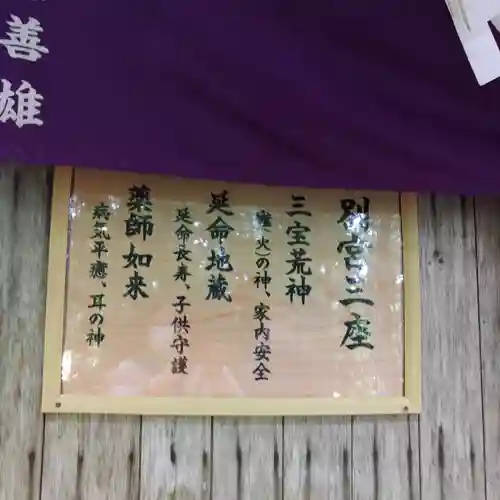 別宮三座
三宝荒神
竈(火)の神、家内安全
延命地蔵
延命長寿、子供守護
薬師如来
病気平癒、耳の神
善雄